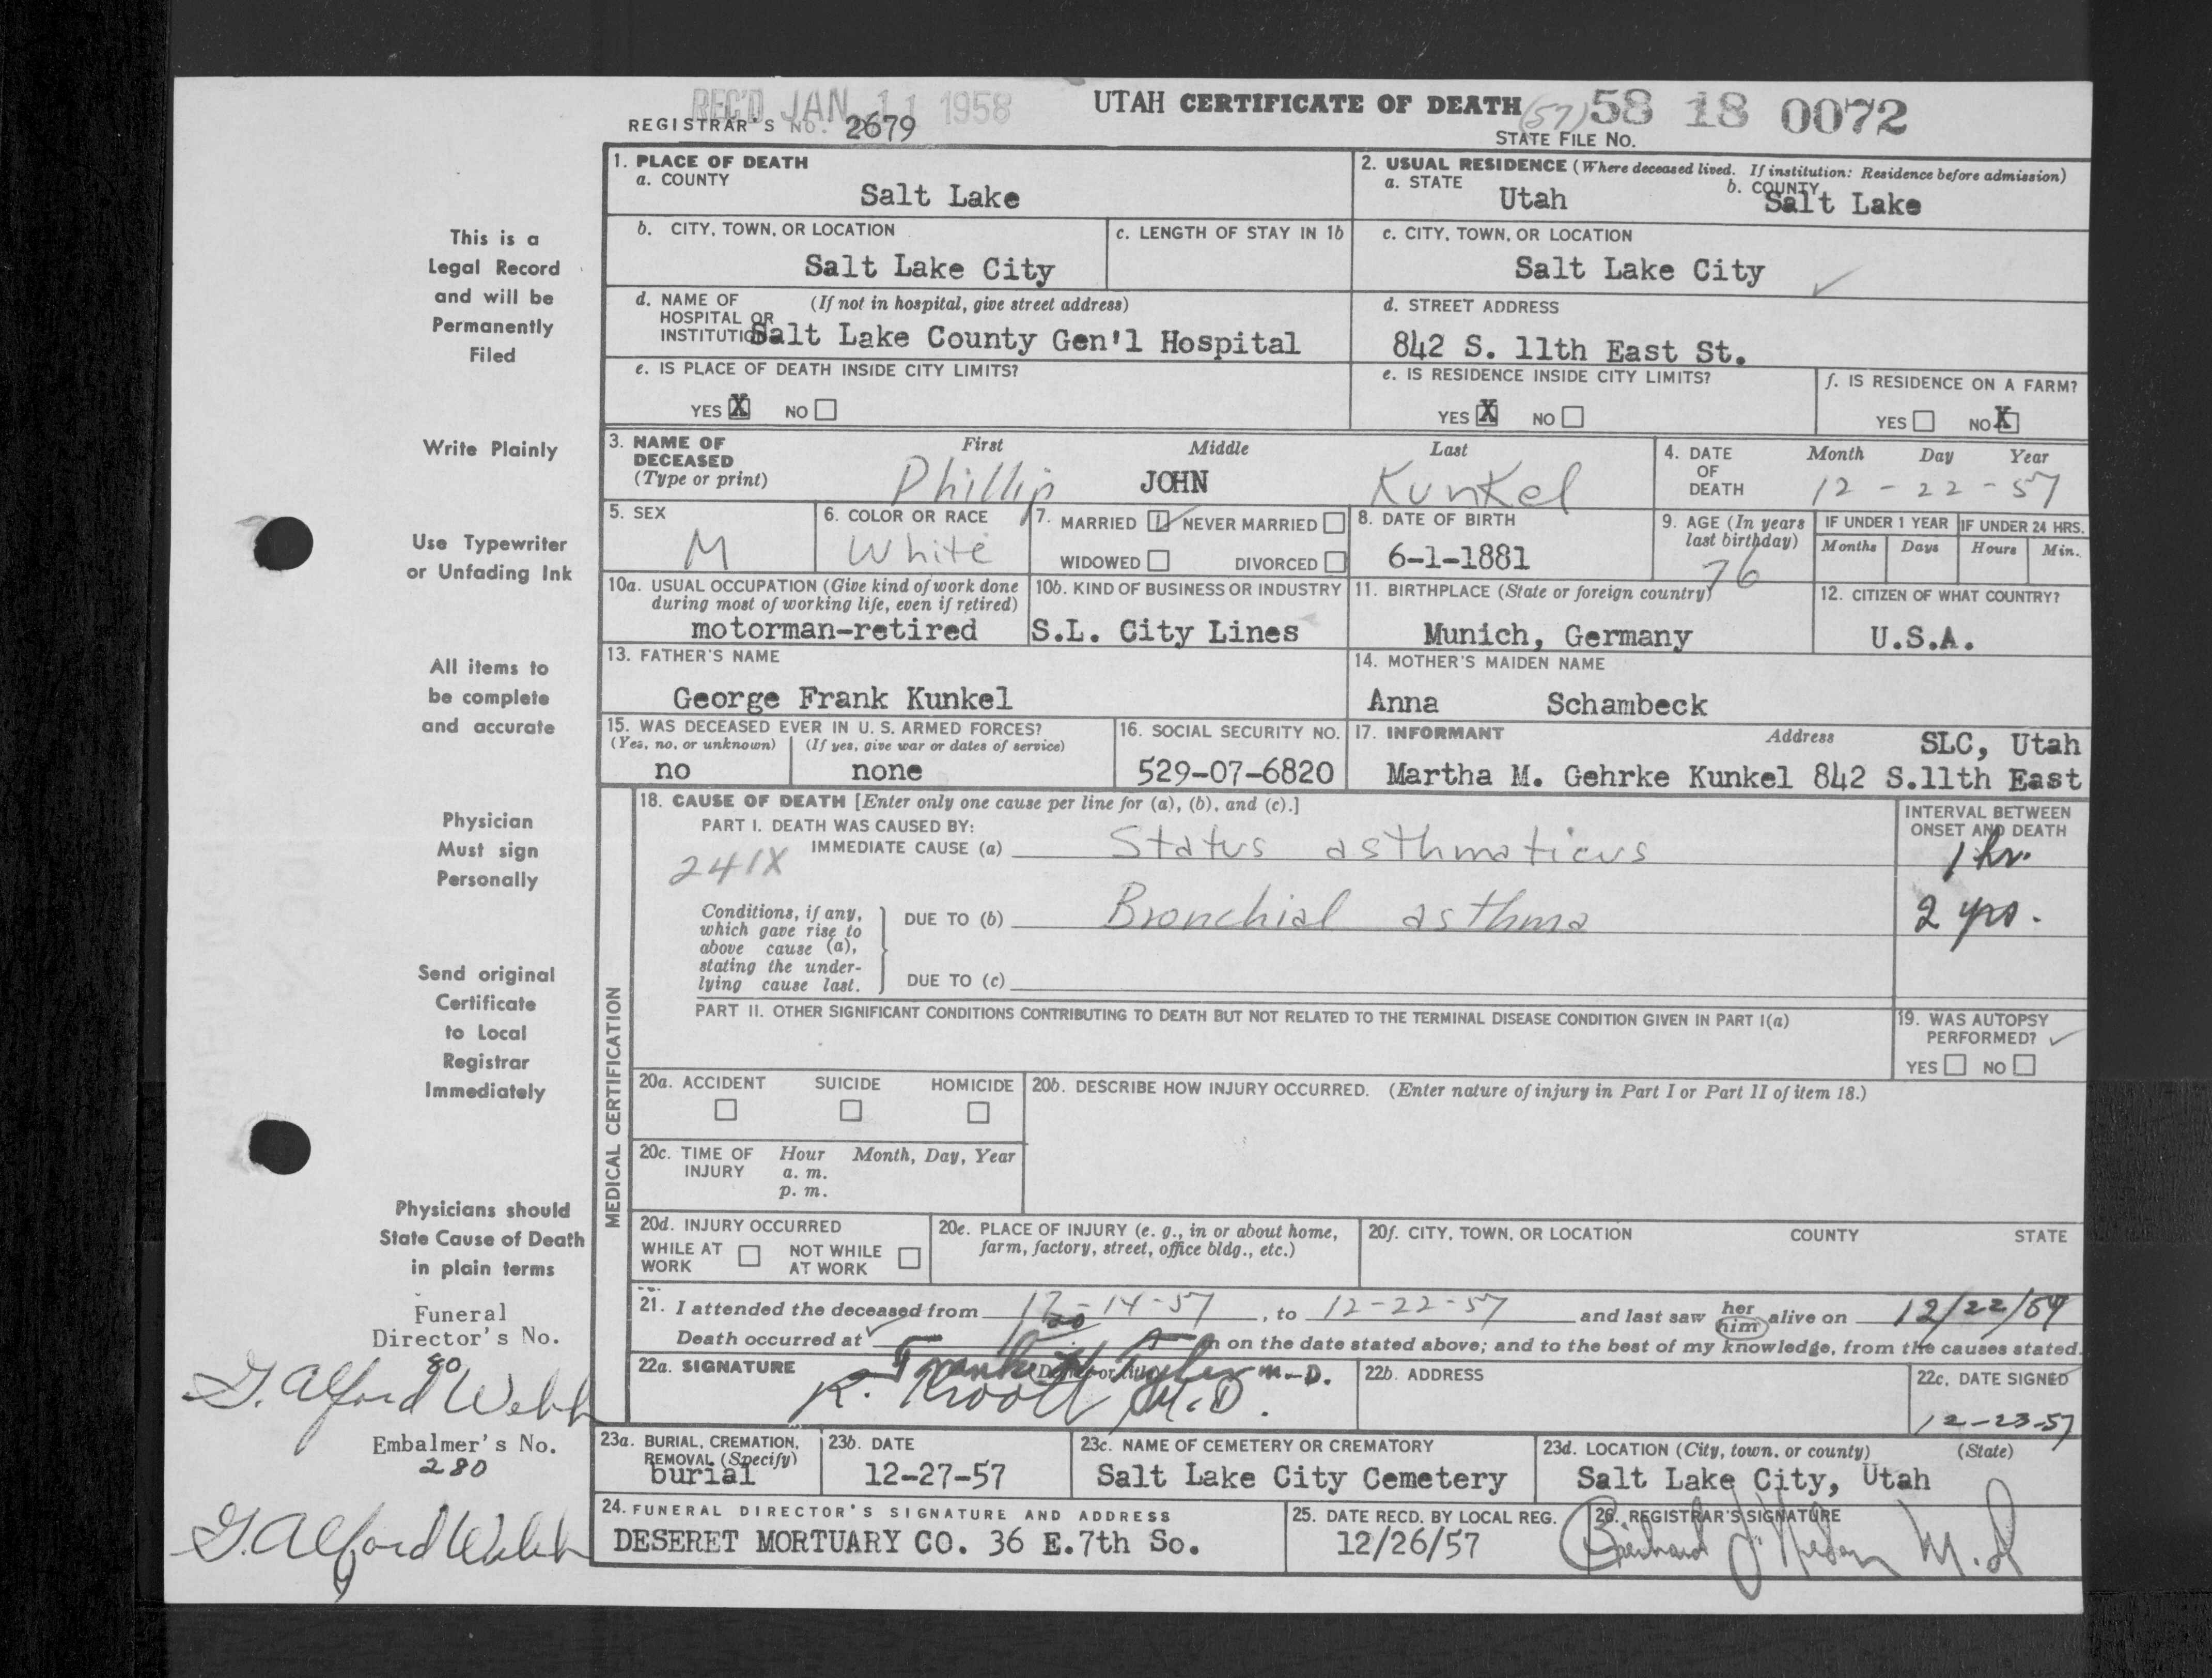 REC'D JAN 11 1958
UTAH CERTIFICATE OF DEATH (57) 58 18 0072
REGISTRAR'S NO. 2679
STATE FILE NO.
This is a
Legal Record
and will be
Permanently
Filed
Write Plainly
Use Typewriter
or Unfading Ink
All items to
be complete
and accurate
Physician
Must sign
Personally
Send original
Certificate
to Local
Registrar
Immediately
Physicians should
State Cause of Death
in plain terms
Funeral
Director's No.
80
G. Alford Webb
Embalmer's No.
280
G. Alford Webb
1. PLACE OF DEATH
a. COUNTY
Salt Lake
2. USUAL RESIDENCE (Where deceased lived. If institution: Residence before admission)
a. STATE
Utah
b. COUNTY
Salt Lake
b. CITY, TOWN, OR LOCATION
Salt Lake City
c. LENGTH OF STAY IN 1b
c. CITY, TOWN, OR LOCATION
Salt Lake City
d. NAME OF (If not in hospital, give street address)
HOSPITAL OR
INSTITUTION
Salt Lake County Gen'l Hospital
d. STREET ADDRESS
842 S. 11th East St.
e. IS PLACE OF DEATH INSIDE CITY LIMITS?
YES X NO
e. IS RESIDENCE INSIDE CITY LIMITS?
YES X NO
f. IS RESIDENCE ON A FARM?
YES NO X
3. NAME OF
DECEASED
(Type or print)
First Middle Last
Phillip JOHN Kunkel
4. DATE
OF
DEATH
Month Day Year
12-22-57
5. SEX
M
6. COLOR OR RACE
White
7. MARRIED NEVER MARRIED
WIDOWED DIVORCED
8. DATE OF BIRTH
6-1-1881
9. AGE (In years
last birthday)
76
IF UNDER 1 YEAR IF UNDER 24 HRS.
Months Days Hours Min.
10a. USUAL OCCUPATION (Give kind of work done
during most of working life, even if retired)
motorman-retired
10b. KIND OF BUSINESS OR INDUSTRY
S.L. City Lines
11. BIRTHPLACE (State or foreign country)
Munich, Germany
12. CITIZEN OF WHAT COUNTRY?
U.S.A.
13. FATHER'S NAME
George Frank Kunkel
14. MOTHER'S MAIDEN NAME
Anna Schambeck
15. WAS DECEASED EVER IN U. S. ARMED FORCES?
(Yes, no, or unknown) (If yes, give war or dates of service)
no none
16. SOCIAL SECURITY NO.
529-07-6820
17. INFORMANT Address
SLC, Utah
Martha M. Gehrke Kunkel 842 S.11th East
MEDICAL CERTIFICATION
18. CAUSE OF DEATH [Enter only one cause per line for (a), (b), and (c).]
PART I. DEATH WAS CAUSED BY:
IMMEDIATE CAUSE (a) Status asthmaticus
241X
INTERVAL BETWEEN
ONSET AND DEATH
1 hr.
Conditions, if any,
which gave rise to
above cause (a),
stating the under-
lying cause last.
DUE TO (b) Bronchial asthma
2 yrs.
DUE TO (c)
PART II. OTHER SIGNIFICANT CONDITIONS CONTRIBUTING TO DEATH BUT NOT RELATED TO THE TERMINAL DISEASE CONDITION GIVEN IN PART I(a)
19. WAS AUTOPSY
PERFORMED?
YES NO
20a. ACCIDENT SUICIDE HOMICIDE
20b. DESCRIBE HOW INJURY OCCURRED. (Enter nature of injury in Part I or Part II of item 18.)
20c. TIME OF Hour Month, Day, Year
INJURY a. m.
p. m.
20d. INJURY OCCURRED
WHILE AT NOT WHILE
WORK AT WORK
20e. PLACE OF INJURY (e. g., in or about home,
farm, factory, street, office bldg., etc.)
20f. CITY, TOWN, OR LOCATION COUNTY STATE
21. I attended the deceased from 12-14-57, to 12-22-57 and last saw her him alive on 12/22/57
Death occurred at m on the date stated above; and to the best of my knowledge, from the causes stated.
22a. SIGNATURE
Frank M.D.
K. M.D.
22b. ADDRESS
22c. DATE SIGNED
12-23-57
23a. BURIAL, CREMATION,
REMOVAL (Specify)
burial
23b. DATE
12-27-57
23c. NAME OF CEMETERY OR CREMATORY
Salt Lake City Cemetery
23d. LOCATION (City, town. or county) (State)
Salt Lake City, Utah
24. FUNERAL DIRECTOR'S SIGNATURE AND ADDRESS
DESERET MORTUARY CO. 36 E.7th So.
25. DATE RECD. BY LOCAL REG.
12/26/57
26. REGISTRAR'S SIGNATURE
M.D.